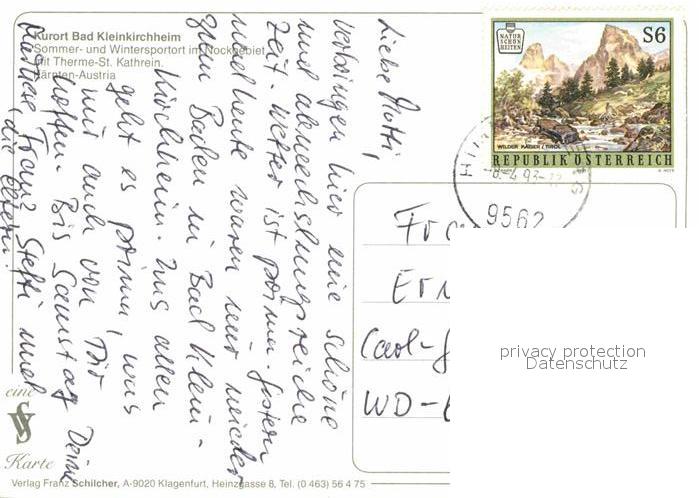 Kurort Bad Kleinkirchheim
Sommer- und Wintersportort im Nockgebiet
mit Therme-St. Kathrein.
Kärnten-Austria
Liebe Mutti,
verbringen hier eine schöne
und abwechslungsreiche
Zeit. Wetter ist prima. Gestern
und heute waren wir wieder
zum Baden in Bad Klein-
kirchheim. Uns allen
geht es prima, was
wir auch von Dir
hoffen. Bis Samstag Deine
Franz Steffi und
die Eltern.
NATUR
SCHÖN
HEITEN
S6
WILDER KAISER / TIROL
REPUBLIK ÖSTERREICH
9562
WD-
privacy protection
Datenschutz
eine
Karte
Verlag Franz Schilcher, A-9020 Klagenfurt, Heinzgasse 8, Tel. (0 463) 56 4 75